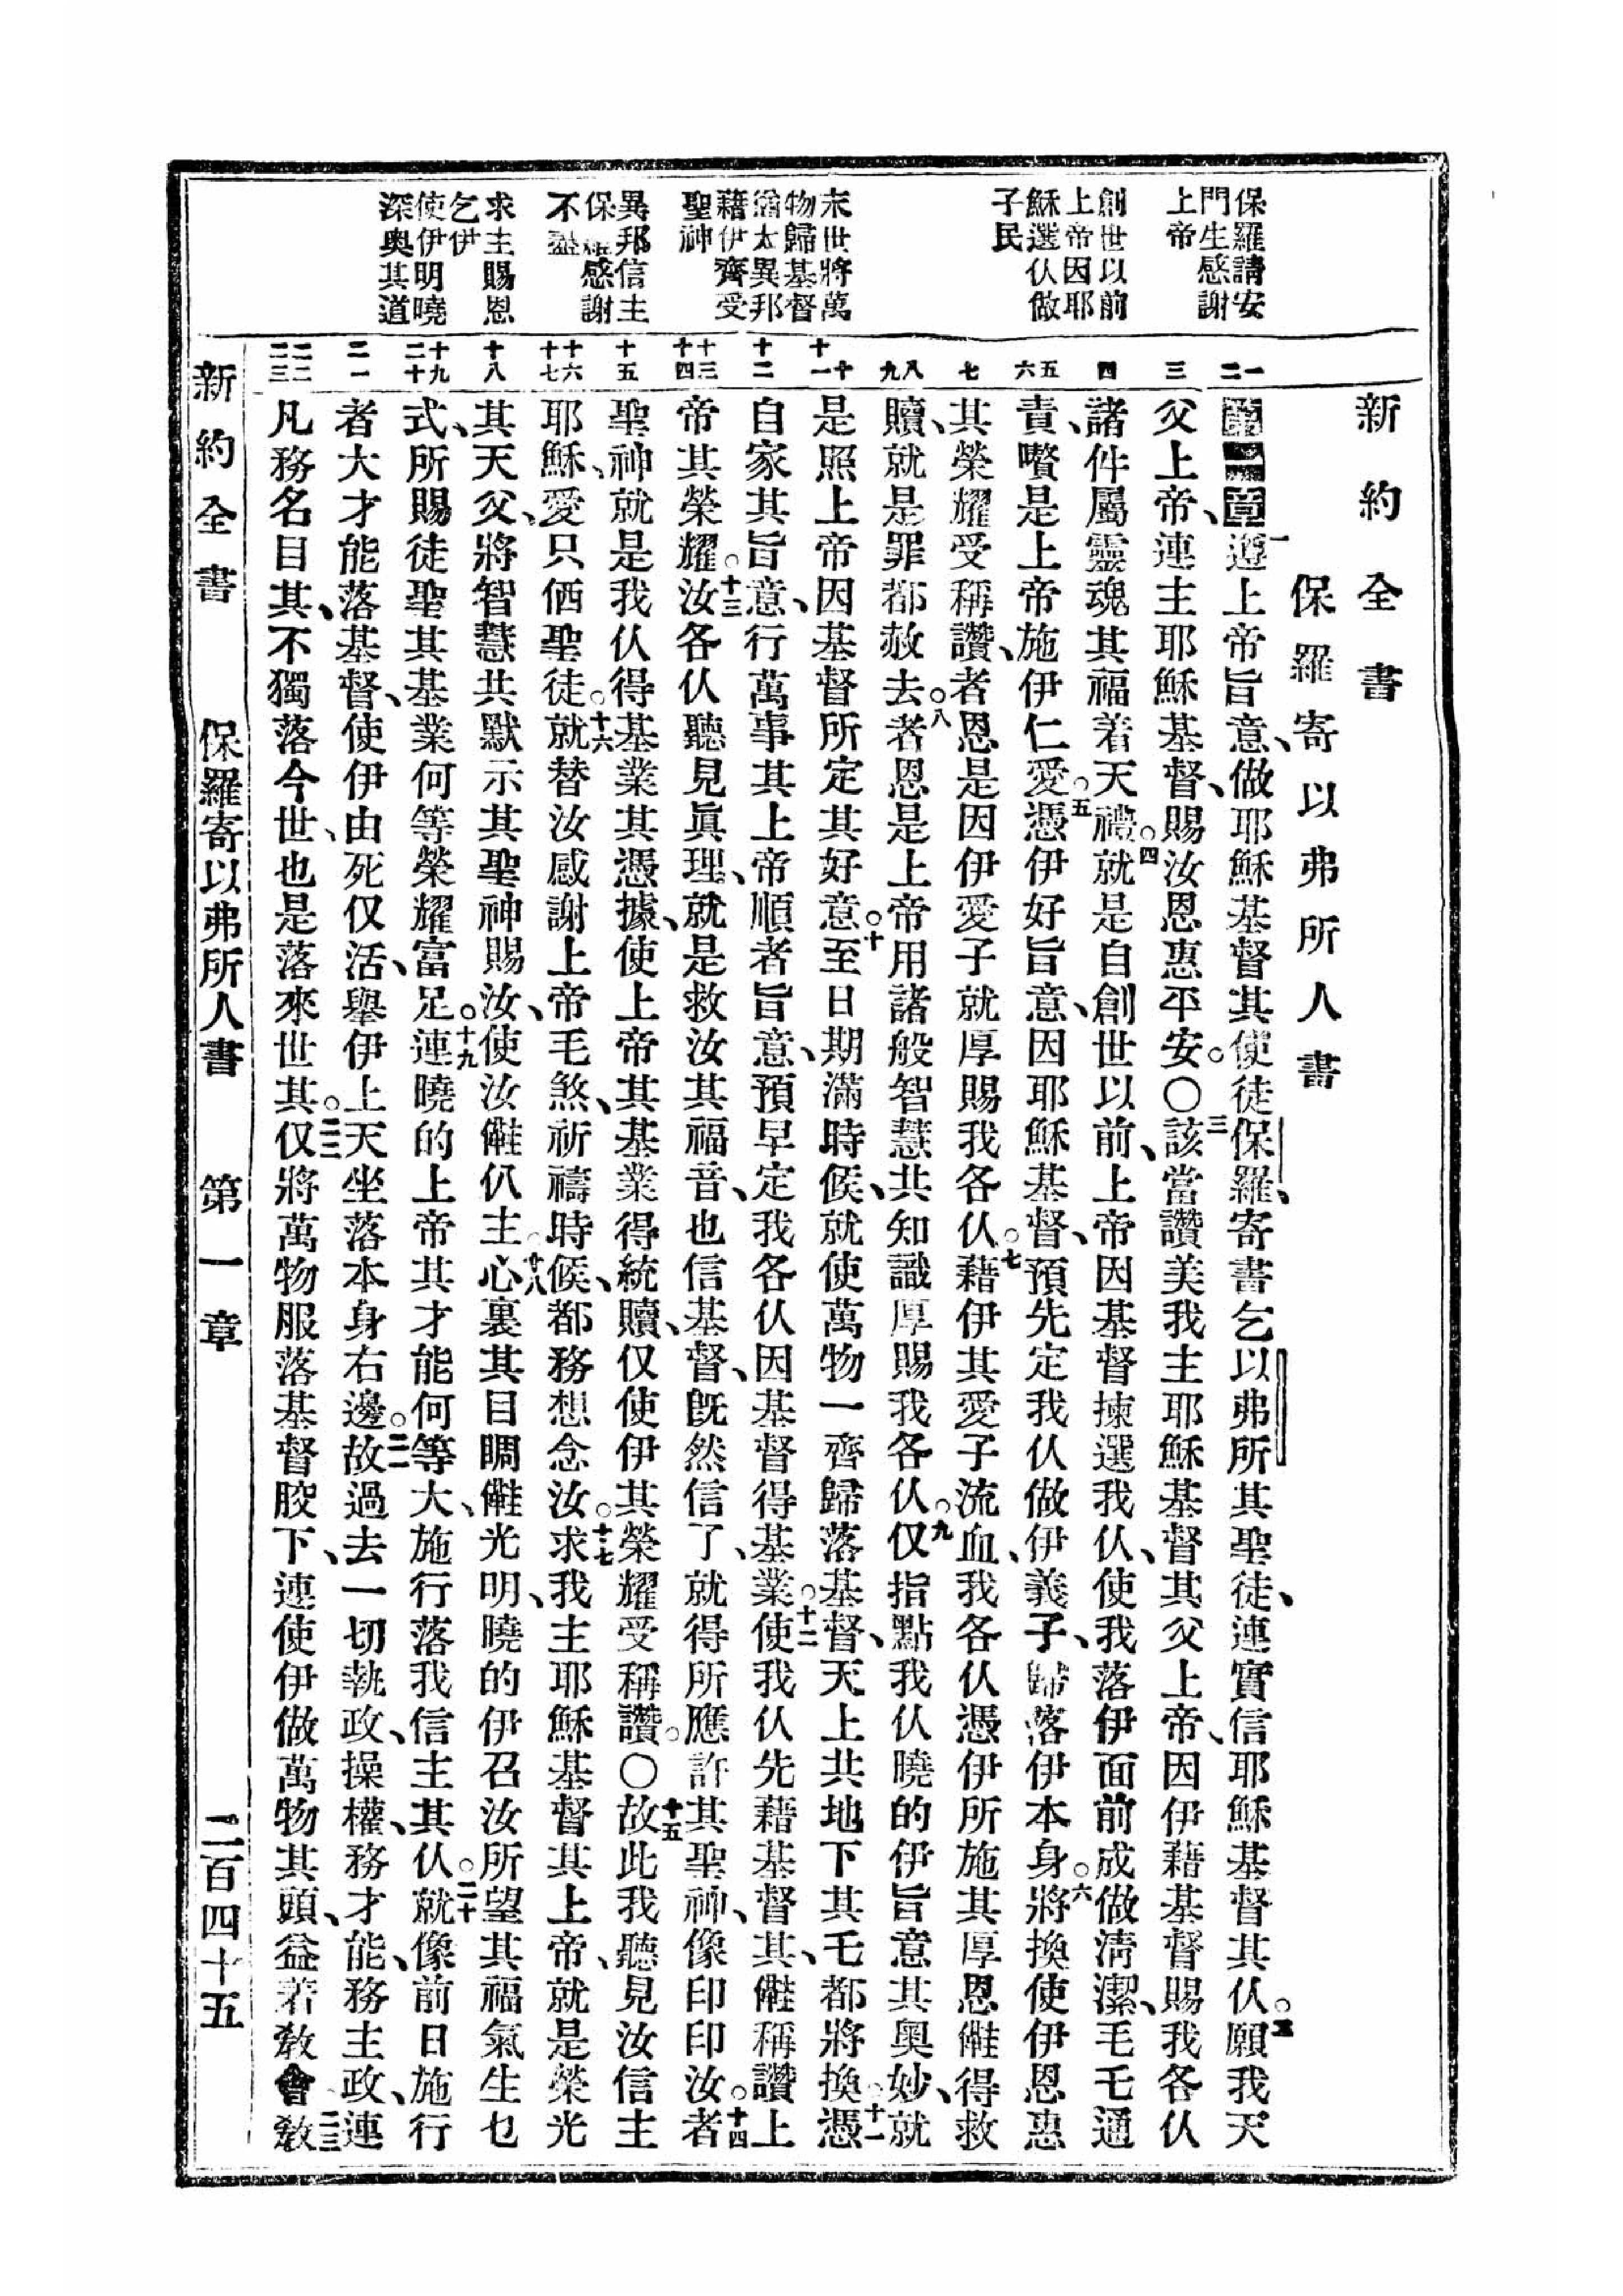 新約全書
保羅寄以弗所人書
保羅請安
門生感謝
上帝
創世以前
上帝因耶
穌選仈做
子民
末世將萬
物歸基督
猶太異邦
藉伊齊受
聖神
異邦信主
保羅感謝
不盡
求主賜恩
乞伊
使伊明曉
深奧其道
一二
三
四
五六
七
八九
十十一
十二
十三十四
十五
十六十七
十八
十九二十
二一
二二二三
第一章一遵上帝旨意、做耶穌基督其使徒保羅、寄書乞以弗所其聖徒、連實信耶穌基督其仈。二願我天
父上帝、連主耶穌基督、賜汝恩惠平安。〇三該當讚美我主耶穌基督其父上帝、因伊藉基督賜我各仈
諸件屬靈魂其福着天禮。四就是自創世以前、上帝因基督揀選我仈、使我落伊面前成做清潔、毛乇通
責嘴是上帝施伊仁愛。五憑伊好旨意、因耶穌基督、預先定我仈做伊義子、歸落伊本身。六將換使伊恩惠
其榮耀受稱讚、者恩是因伊愛子就厚賜我各仈。七藉伊其愛子流血、我各仈憑伊所施其厚恩㒕得救
贖、就是罪都赦去。八者恩是上帝用諸般智慧、共知識厚賜我各仈。九仅指點我仈曉的伊旨意其奧妙、就
是照上帝因基督所定其好意。十至日期滿時候、就使萬物一齊歸落基督、天上共地下其乇都將換。十一憑
自家其旨意、行萬事其上帝順者旨意、預早定我各仈因基督得基業。十二使我仈先藉基督其、㒕稱讚上
帝其榮耀。十三汝各仈聽見眞理、就是救汝其福音、也信基督、旣然信了、就得所應許其聖神、像印印汝。十四者
聖神就是我仈得基業其憑據、使上帝其基業得統贖、仅使伊其榮耀受稱讚。〇十五故此我聽見汝信主
耶穌、愛只俩聖徒。十六就替汝感謝上帝毛煞、祈禱時候、都務想念汝。十七求我主耶穌基督其上帝、就是榮光
其天父、將智慧共默示其聖神賜汝、使汝㒕仈主。十八心裏其目睭㒕光明、曉的伊召汝所望其福氣生乜
式、所賜徒聖其基業何等榮耀富足。十九連曉的上帝其才能何等大、施行落我信主其仈。二十就像前日施行
者大才能落基督、使伊由死仅活、舉伊上天坐落本身右邊。二一故過去一切執政、操權、務才能、務主政、連
凡務名目其、不獨落今世、也是落來世其。二二仅將萬物服落基督骹下、連使伊做萬物其頭、益著教會二三教
新約全書　保羅寄以弗所人書　第一章　二百四十五